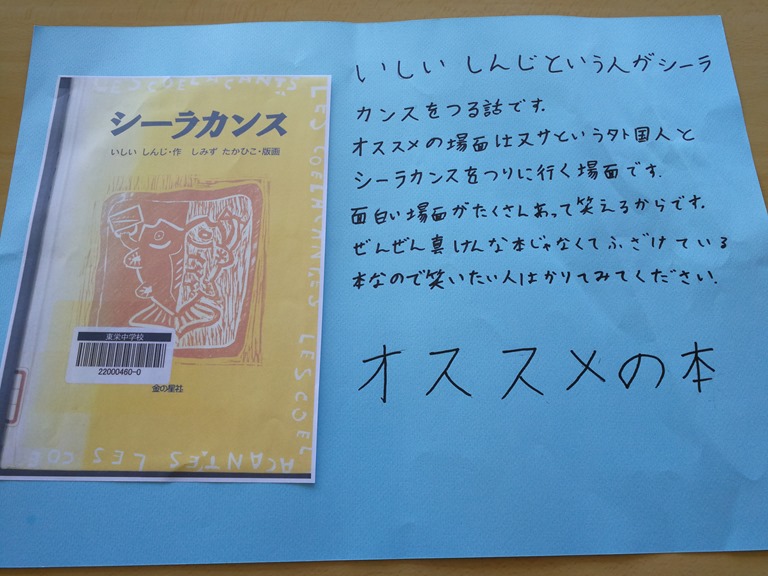 LES COELACANTES LES COEL
ACANTES LES COE
シーラカンス
いしい しんじ・作 しみず たかひこ・版画
東栄中学校
22000460-0
金の星社
いしい しんじという人がシーラ
カンスをつる話です.
オススメの場面はヌサという外国人と
シーラカンスをつりに行く場面です.
面白い場面がたくさんあって笑えるからです.
ぜんぜん真けんな本じゃなくてふざけている
本なので笑いたい人はかりてみてください.
オススメの本